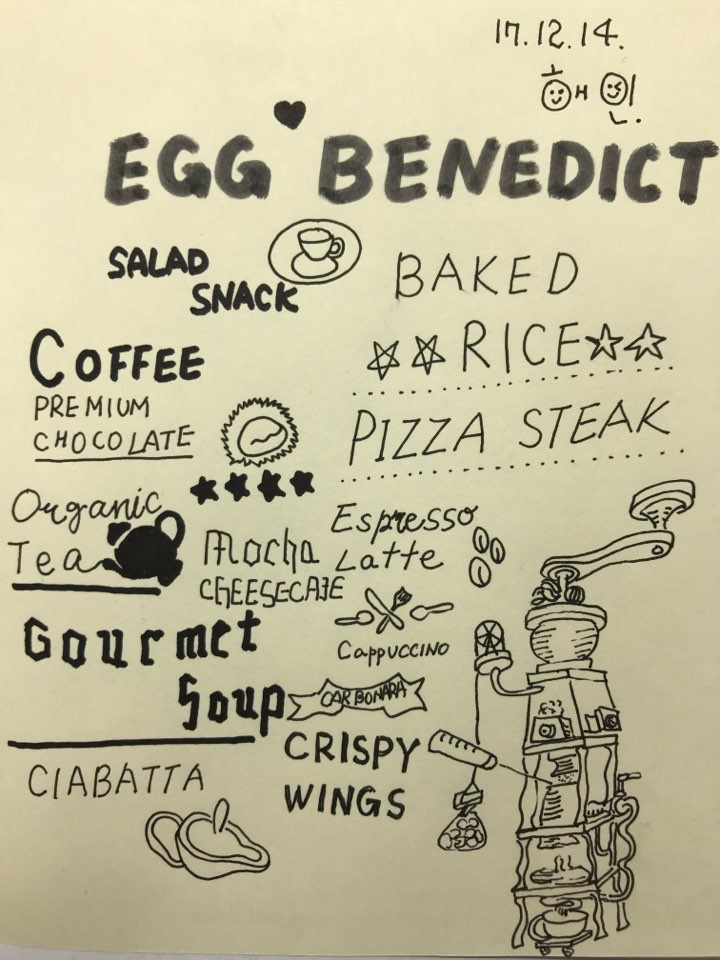 17.12.14.
혜인.
EGG BENEDICT
SALAD
SNACK
BAKED
RICE
COFFEE
PREMIUM
CHOCOLATE
PIZZA STEAK
Organic
Tea
Mocha
CHEESECAKE
Espresso
Latte
Cappuccino
Gourmet
Soup
CARBONARA
CRISPY
WINGS
CIABATTA